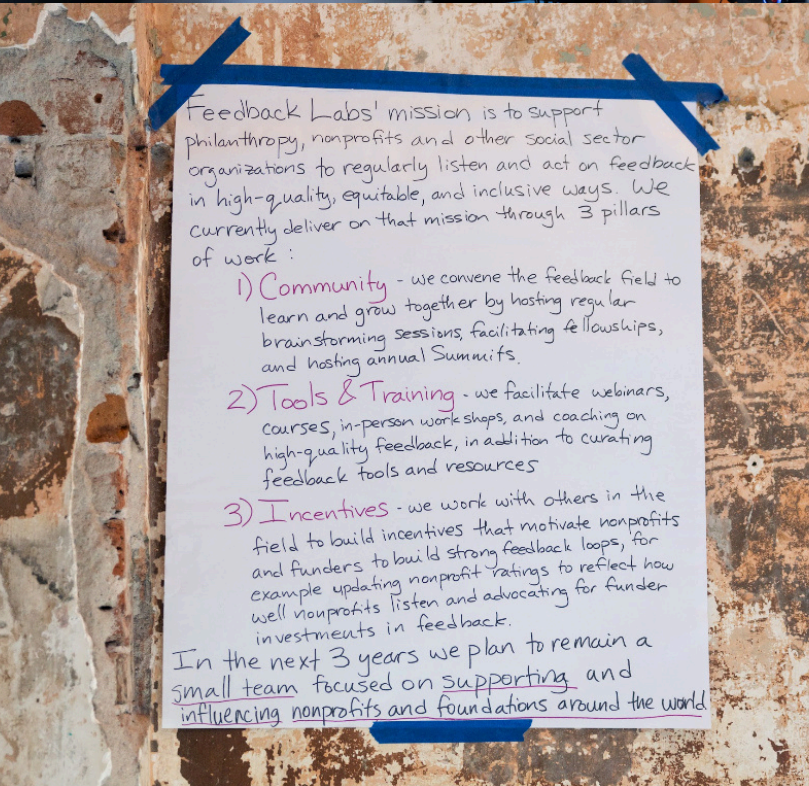 Feedback Labs' mission is to support
philanthropy, nonprofits and other social sector
organizations to regularly listen and act on feedback
in high-quality, equitable, and inclusive ways. We
currently deliver on that mission through 3 pillars
of work :
1) Community - we convene the feedback field to
learn and grow together by hosting regular
brainstorming sessions, facilitating fellowships,
and hosting annual Summits.
2) Tools & Training - we facilitate webinars,
courses, in-person workshops, and coaching on
high-quality feedback, in addition to curating
feedback tools and resources
3) Incentives - we work with others in the
field to build incentives that motivate nonprofits
and funders to build strong feedback loops, for
example updating nonprofit ratings to reflect how
well nonprofits listen and advocating for funder
investments in feedback.
In the next 3 years we plan to remain a
small team focused on supporting and
influencing nonprofits and foundations around the world